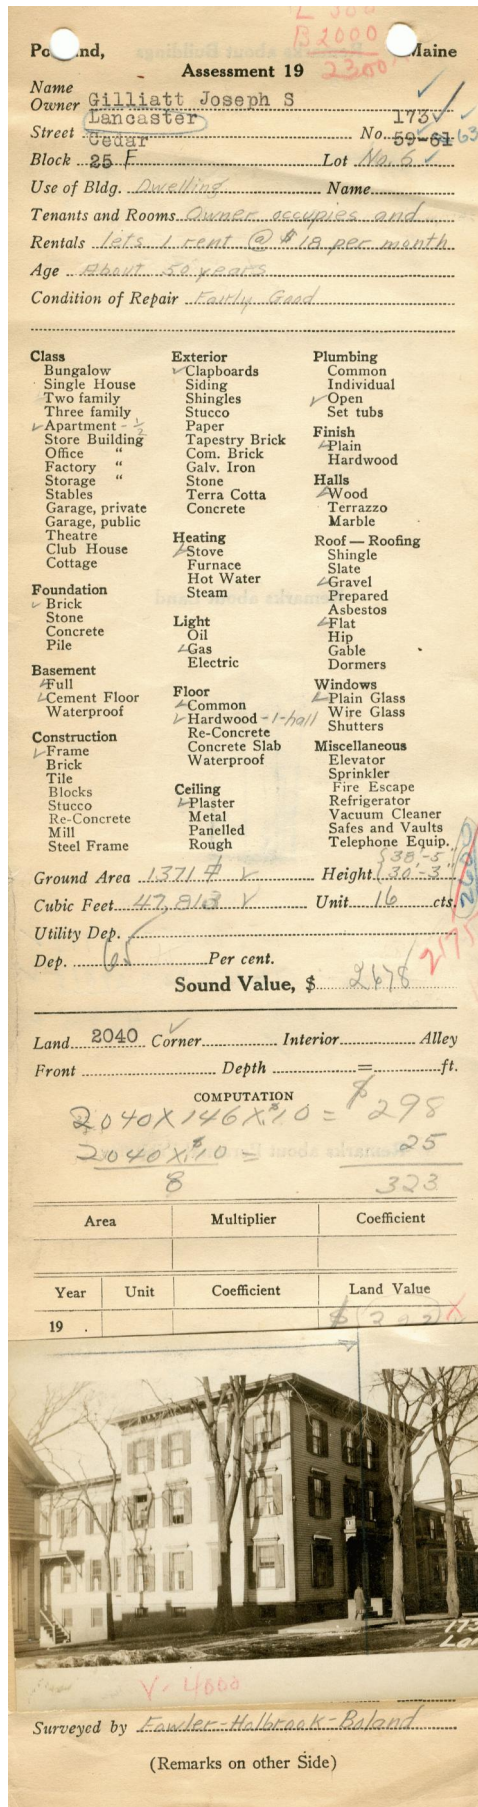 L 300
B 2000
2300
Portland, Maine
Assessment 19
Name
Owner Gilliatt Joseph S
Lancaster 173
Street Cedar No. 59-61 63
Block 25 F Lot No. 5
Use of Bldg. Dwelling Name
Tenants and Rooms Owner occupies and
Rentals lets 1 rent @ $18 per month
Age About 50 years
Condition of Repair Fairly Good
Class
Bungalow
Single House
Two family
Three family
Apartment - 1/2
Store Building
Office "
Factory "
Storage "
Stables
Garage, private
Garage, public
Theatre
Club House
Cottage
Foundation
Brick
Stone
Concrete
Pile
Basement
Full
Cement Floor
Waterproof
Construction
Frame
Brick
Tile
Blocks
Stucco
Re-Concrete
Mill
Steel Frame
Exterior
Clapboards
Siding
Shingles
Stucco
Paper
Tapestry Brick
Com. Brick
Galv. Iron
Stone
Terra Cotta
Concrete
Heating
Stove
Furnace
Hot Water
Steam
Light
Oil
Gas
Electric
Floor
Common
Hardwood - 1-hall
Re-Concrete
Concrete Slab
Waterproof
Ceiling
Plaster
Metal
Panelled
Rough
Plumbing
Common
Individual
Open
Set tubs
Finish
Plain
Hardwood
Halls
Wood
Terrazzo
Marble
Roof — Roofing
Shingle
Slate
Gravel
Prepared
Asbestos
Flat
Hip
Gable
Dormers
Windows
Plain Glass
Wire Glass
Shutters
Miscellaneous
Elevator
Sprinkler
Fire Escape
Refrigerator
Vacuum Cleaner
Safes and Vaults
Telephone Equip.
38'-5"
Ground Area 1371 Height 30'-3"
Cubic Feet 47,813 Unit 16 cts.
2600
2175
Utility Dep.
Dep. 65 Per cent.
Sound Value, $ 2678
Land 2040 Corner Interior Alley
Front Depth = ft.
COMPUTATION
2040 X 146 X $.10 = $298
2040 X $.10 = 25
8 323
Area Multiplier Coefficient
Year Unit Coefficient Land Value
19 . $
173
La
V-4000
Surveyed by Fowler-Holbrook-Boland
(Remarks on other Side)